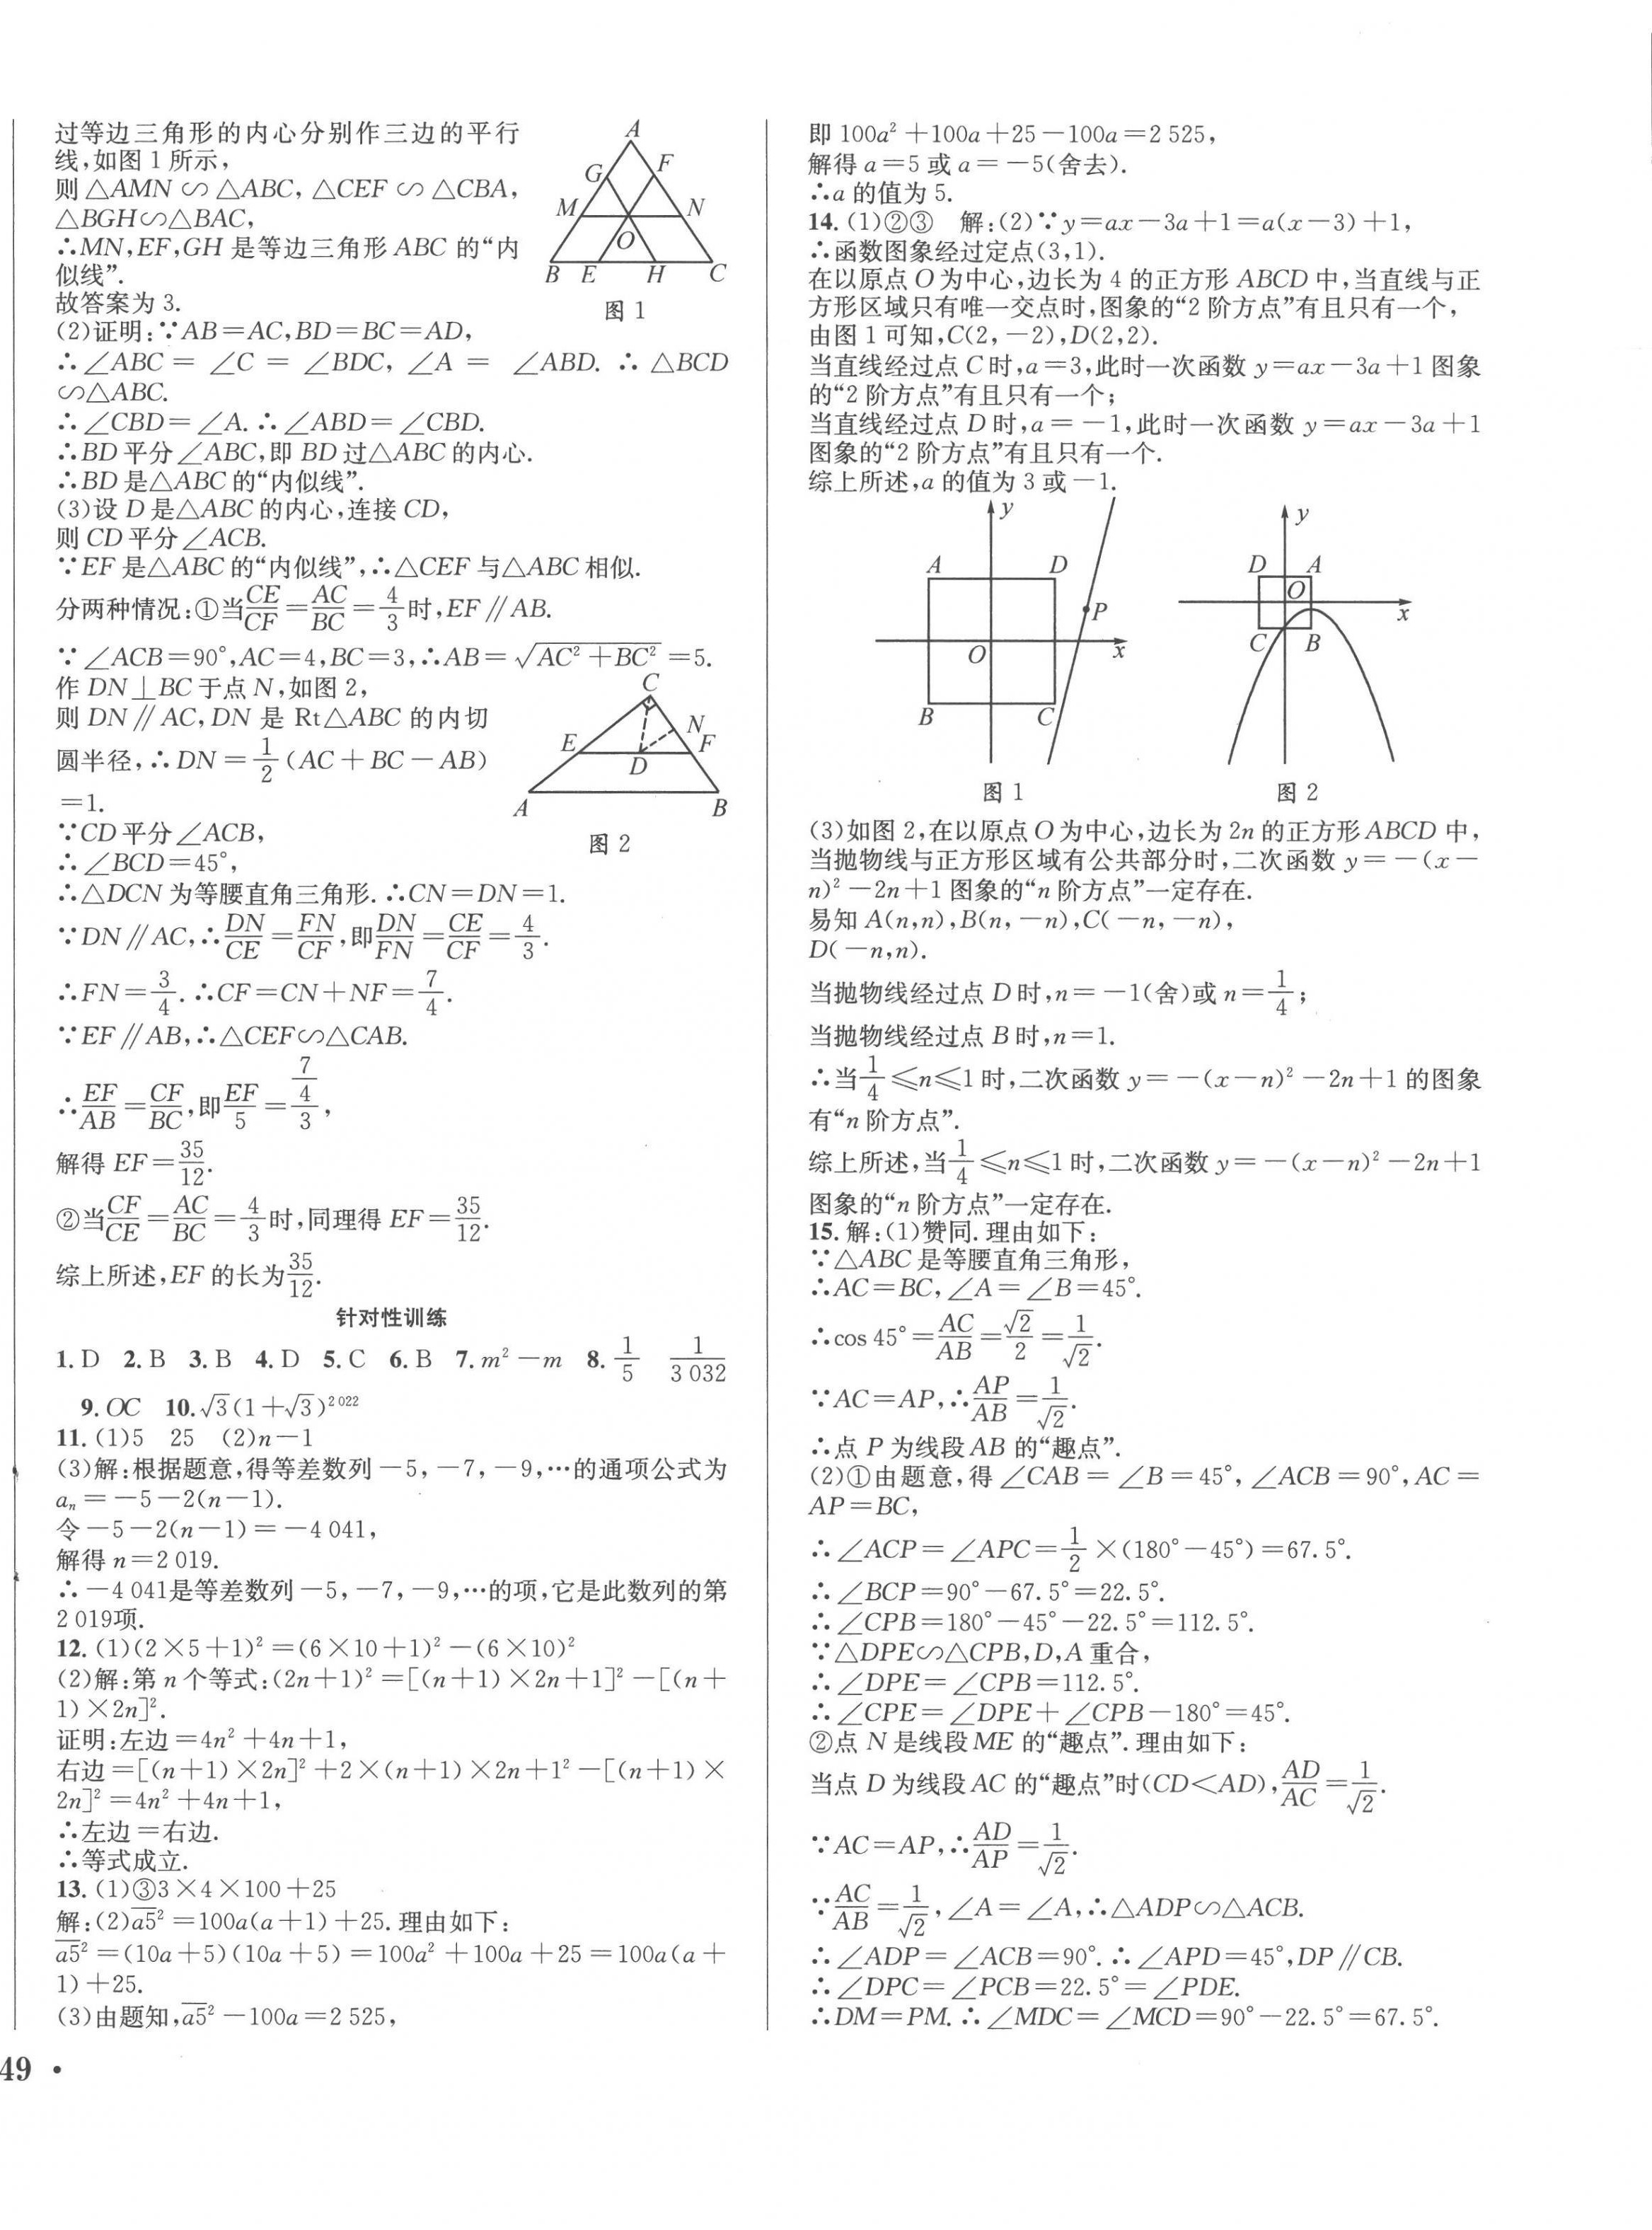 过等边三角形的内心分别作三边的平行
线,如图 1 所示,
则△AMN∽△ABC,△CEF∽△CBA,
△BGH∽△BAC,
∴MN,EF,GH 是等边三角形 ABC 的“内
似线”.
故答案为 3.
A
G
F
M
N
O
B
E
H
C
图 1
(2)证明:∵AB=AC,BD=BC=AD,
∴∠ABC=∠C=∠BDC,∠A=∠ABD.∴△BCD
∽△ABC.
∴∠CBD=∠A.∴∠ABD=∠CBD.
∴BD 平分∠ABC,即 BD 过△ABC 的内心.
∴BD 是△ABC 的“内似线”.
(3)设 D 是△ABC 的内心,连接 CD,
则 CD 平分∠ACB.
∵EF 是△ABC 的“内似线”,∴△CEF 与△ABC 相似.
分两种情况:①当CE/CF=AC/BC=4/3时,EF∥AB.
∵∠ACB=90°,AC=4,BC=3,∴AB=√(AC²+BC²)=5.
作 DN⊥BC 于点 N,如图 2,
则 DN∥AC,DN 是 Rt△ABC 的内切
圆半径,∴DN=1/2(AC+BC-AB)
=1.
C
N
E
F
D
A
B
图 2
∵CD 平分∠ACB,
∴∠BCD=45°,
∴△DCN 为等腰直角三角形.∴CN=DN=1.
∵DN∥AC,∴DN/CE=FN/CF,即DN/FN=CE/CF=4/3.
∴FN=3/4.∴CF=CN+NF=7/4.
∵EF∥AB,∴△CEF∽△CAB.
∴EF/AB=CF/BC,即EF/5=(7/4)/3,
解得 EF=35/12.
②当CF/CE=AC/BC=4/3时,同理得 EF=35/12.
综上所述,EF 的长为35/12.
针对性训练
1. D 2. B 3. B 4. D 5. C 6. B 7. m²-m 8. 1/5 1/3 032
9. OC 10. √3(1+√3)^2 022
11. (1)5 25 (2)n-1
(3)解:根据题意,得等差数列-5,-7,-9,…的通项公式为
aₙ=-5-2(n-1).
令-5-2(n-1)=-4 041,
解得 n=2 019.
∴-4 041是等差数列-5,-7,-9,…的项,它是此数列的第
2 019项.
12. (1)(2×5+1)²=(6×10+1)²-(6×10)²
(2)解:第 n 个等式:(2n+1)²=[(n+1)×2n+1]²-[(n+
1)×2n]².
证明:左边=4n²+4n+1,
右边=[(n+1)×2n]²+2×(n+1)×2n+1²-[(n+1)×
2n]²=4n²+4n+1,
∴左边=右边.
∴等式成立.
13. (1)③3×4×100+25
解:(2)a̅5̅²=100a(a+1)+25.理由如下:
a̅5̅²=(10a+5)(10a+5)=100a²+100a+25=100a(a+
1)+25.
(3)由题知,a̅5̅²-100a=2 525,
49 ·
即 100a²+100a+25-100a=2 525,
解得 a=5 或 a=-5(舍去).
∴a 的值为 5.
14. (1)②③ 解:(2)∵y=ax-3a+1=a(x-3)+1,
∴函数图象经过定点(3,1).
在以原点 O 为中心,边长为 4 的正方形 ABCD 中,当直线与正
方形区域只有唯一交点时,图象的“2 阶方点”有且只有一个,
由图 1 可知,C(2,-2),D(2,2).
当直线经过点 C 时,a=3,此时一次函数 y=ax-3a+1 图象
的“2 阶方点”有且只有一个;
当直线经过点 D 时,a=-1,此时一次函数 y=ax-3a+1
图象的“2 阶方点”有且只有一个.
综上所述,a 的值为 3 或-1.
y
A
D
P
O
x
B
C
图 1
y
D
A
O
x
C
B
图 2
(3)如图 2,在以原点 O 为中心,边长为 2n 的正方形 ABCD 中,
当抛物线与正方形区域有公共部分时,二次函数 y=-(x-
n)²-2n+1 图象的“n 阶方点”一定存在.
易知 A(n,n),B(n,-n),C(-n,-n),
D(-n,n).
当抛物线经过点 D 时,n=-1(舍)或 n=1/4;
当抛物线经过点 B 时,n=1.
∴当1/4≤n≤1 时,二次函数 y=-(x-n)²-2n+1 的图象
有“n 阶方点”.
综上所述,当1/4≤n≤1 时,二次函数 y=-(x-n)²-2n+1
图象的“n 阶方点”一定存在.
15. 解:(1)赞同.理由如下:
∵△ABC 是等腰直角三角形,
∴AC=BC,∠A=∠B=45°.
∴cos 45°=AC/AB=√2/2=1/√2.
∵AC=AP,∴AP/AB=1/√2.
∴点 P 为线段 AB 的“趣点”.
(2)①由题意,得∠CAB=∠B=45°,∠ACB=90°,AC=
AP=BC,
∴∠ACP=∠APC=1/2×(180°-45°)=67.5°.
∴∠BCP=90°-67.5°=22.5°.
∴∠CPB=180°-45°-22.5°=112.5°.
∵△DPE∽△CPB,D,A 重合,
∴∠DPE=∠CPB=112.5°.
∴∠CPE=∠DPE+∠CPB-180°=45°.
②点 N 是线段 ME 的“趣点”.理由如下:
当点 D 为线段 AC 的“趣点”时(CD<AD),AD/AC=1/√2.
∵AC=AP,∴AD/AP=1/√2.
∵AC/AB=1/√2,∠A=∠A,∴△ADP∽△ACB.
∴∠ADP=∠ACB=90°.∴∠APD=45°,DP∥CB.
∴∠DPC=∠PCB=22.5°=∠PDE.
∴DM=PM.∴∠MDC=∠MCD=90°-22.5°=67.5°.